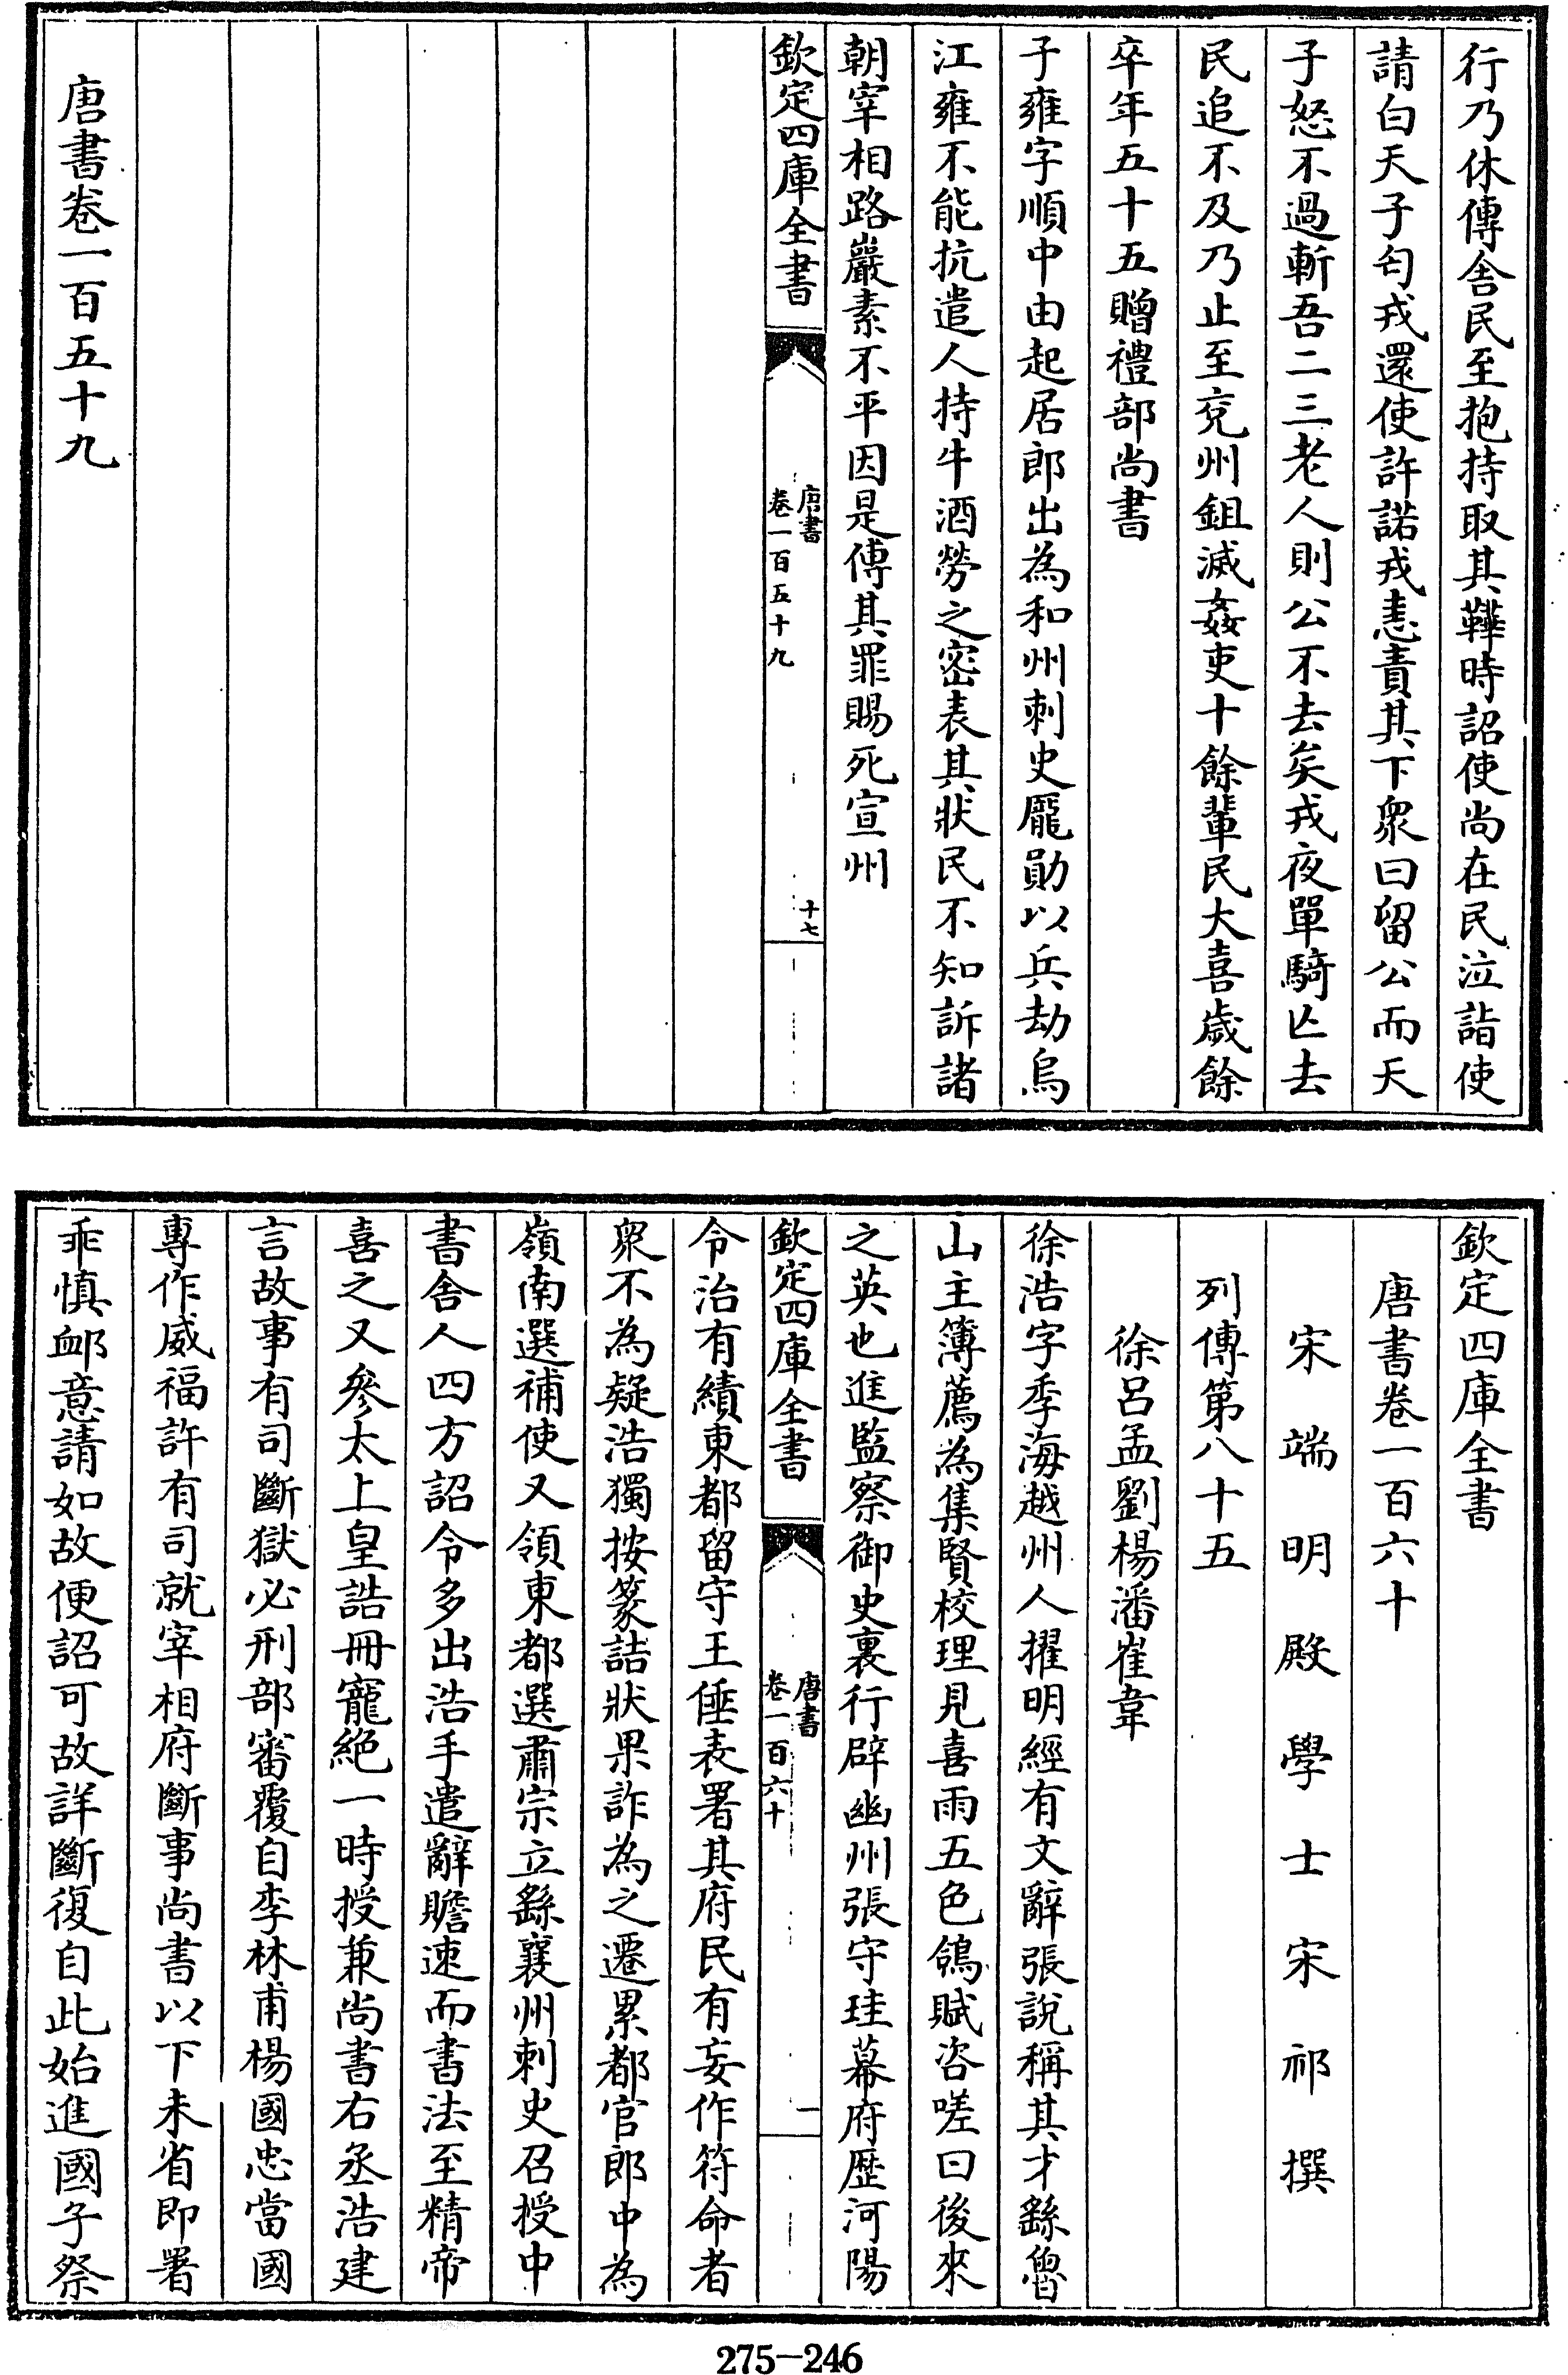 行乃休傳舍民至抱持取其鞾時詔使尚在民泣詣使
請白天子匄戎還使許諾戎恚責其下衆曰留公而天
子怒不過斬吾二三老人則公不去矣戎夜單騎亾去
民追不及乃止至兗州鉏滅姦吏十餘輩民大喜歲餘
卒年五十五贈禮部尚書
子雍字順中由起居郎出為和州刺史龎勛以兵劫烏
江雍不能抗遣人持牛酒勞之密表其狀民不知訴諸
朝宰相路巖素不平因是傅其罪賜死宣州
欽定四庫全書
唐書
卷一百五十九
十七
唐書卷一百五十九
欽定四庫全書
唐書卷一百六十
宋端明殿學士宋祁撰
列傳第八十五
徐呂孟劉楊潘崔韋
徐浩字季海越州人擢明經有文辭張說稱其才繇魯
山主簿薦為集賢校理見喜雨五色鴿賦咨嗟曰後來
之英也進監察御史裏行辟幽州張守珪幕府歴河陽
欽定四庫全書
唐書
卷一百六十
一
令治有績東都留守王倕表署其府民有妄作符命者
衆不為疑浩獨按篆詰狀果詐為之遷累都官郎中為
嶺南選補使又領東都選肅宗立繇襄州刺史召授中
書舍人四方詔令多出浩手遣辭贍速而書法至精帝
喜之又參太上皇誥冊寵絕一時授兼尚書右丞浩建
言故事有司斷獄必刑部審覆自李林甫楊國忠當國
專作威福許有司就宰相府斷事尚書以下未省即署
乖慎䘏意請如故便詔可故詳斷復自此始進國子祭
275-246